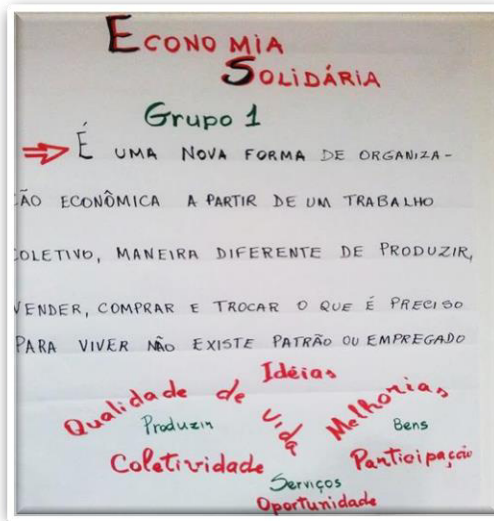 ECONOMIA
SOLIDÁRIA
Grupo 1
É UMA NOVA FORMA DE ORGANIZA-
ÃO ECONÔMICA A PARTIR DE UM TRABALHO
COLETIVO, MANEIRA DIFERENTE DE PRODUZIR,
VENDER, COMPRAR E TROCAR O QUE É PRECISO
PARA VIVER NÃO EXISTE PATRÃO OU EMPREGADO
Idéias
Qualidade de Vida
Melhorias
Produzir
Bens
Coletividade
Participação
Serviços
Oportunidade